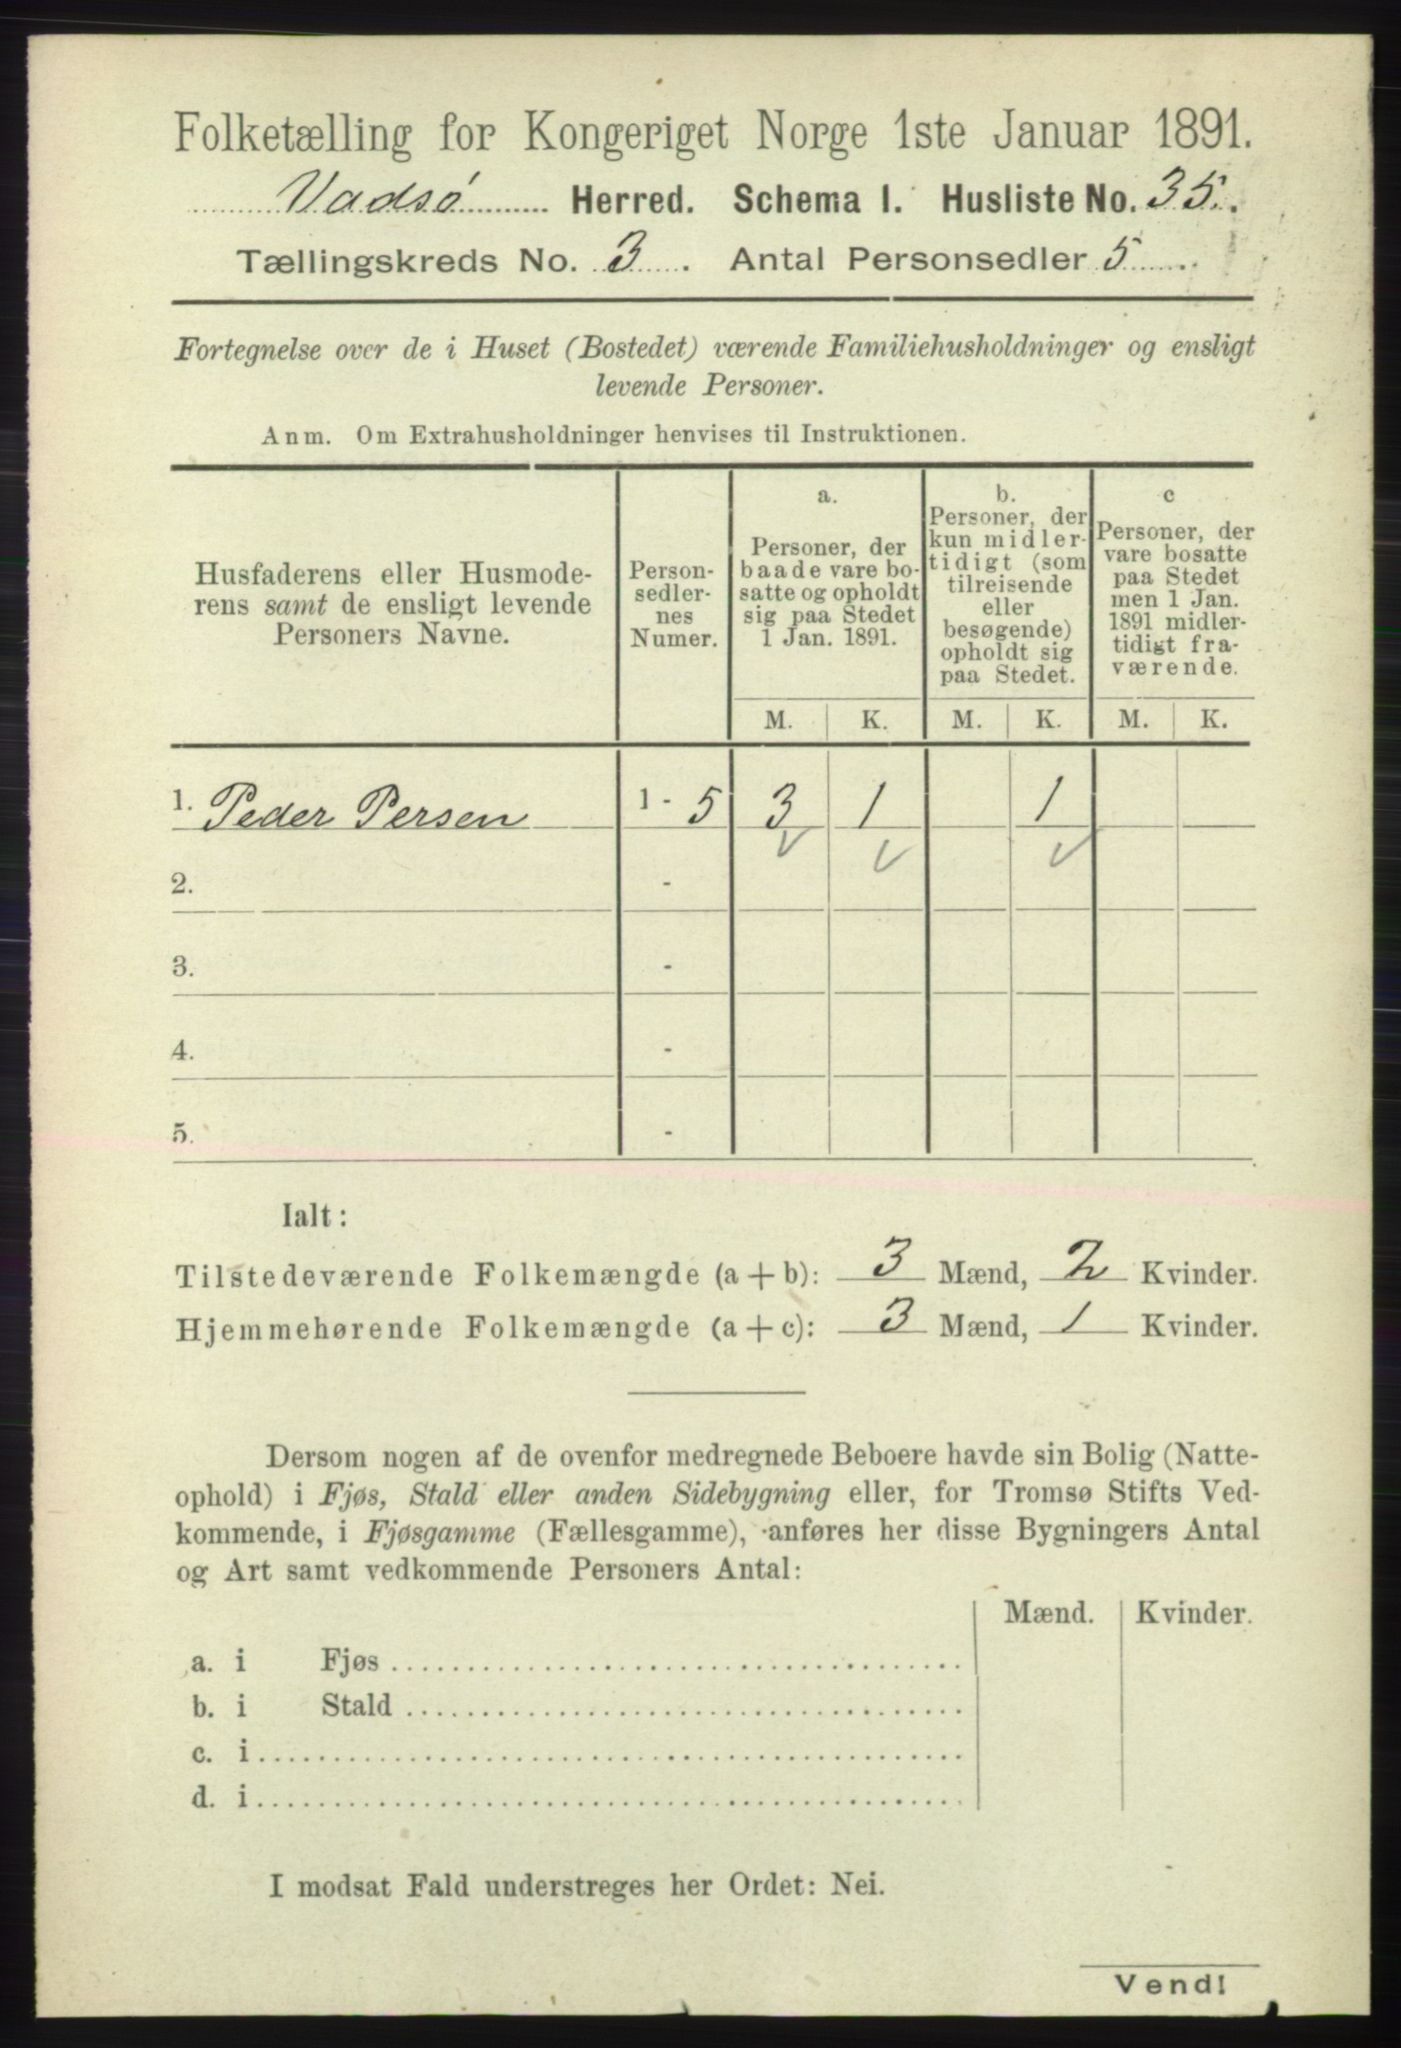 Folketælling for Kongeriget Norge 1ste Januar 1891.
Vadsø Herred. Schema I. Husliste No. 35.
Tællingskreds No. 3. Antal Personsedler 5.
Fortegnelse over de i Huset (Bostedet) værende Familiehusholdninger og ensligt
levende Personer.
Anm. Om Extrahusholdninger henvises til Instruktionen.
Husfaderens eller Husmode-
rens samt de ensligt levende
Personers Navne.
Person-
sedler-
nes
Numer.
a.
Personer, der
baade vare bo-
satte og opholdt
sig paa Stedet
1 Jan. 1891.
b.
Personer, der
kun midler-
tidigt (som
tilreisende
eller
besøgende)
opholdt sig
paa Stedet.
c
Personer, der
vare bosatte
paa Stedet
men 1 Jan.
1891 midler-
tidigt fra-
værende.
M. K. M. K. M. K.
1. Peder Persen 1 - 5 3 1 1
2. -
3. -
4. -
5. -
Ialt:
Tilstedeværende Folkemængde (a + b): 3 Mænd, 2 Kvinder.
Hjemmehørende Folkemængde (a + c): 3 Mænd, 1 Kvinder.
Dersom nogen af de ovenfor medregnede Beboere havde sin Bolig (Natte-
ophold) i Fjøs, Stald eller anden Sidebygning eller, for Tromsø Stifts Ved-
kommende, i Fjøsgamme (Fællesgamme), anføres her disse Bygningers Antal
og Art samt vedkommende Personers Antal:
Mænd. Kvinder.
a. i Fjøs
b. i Stald
c. i
d. i
I modsat Fald understreges her Ordet: Nei.
Vend!